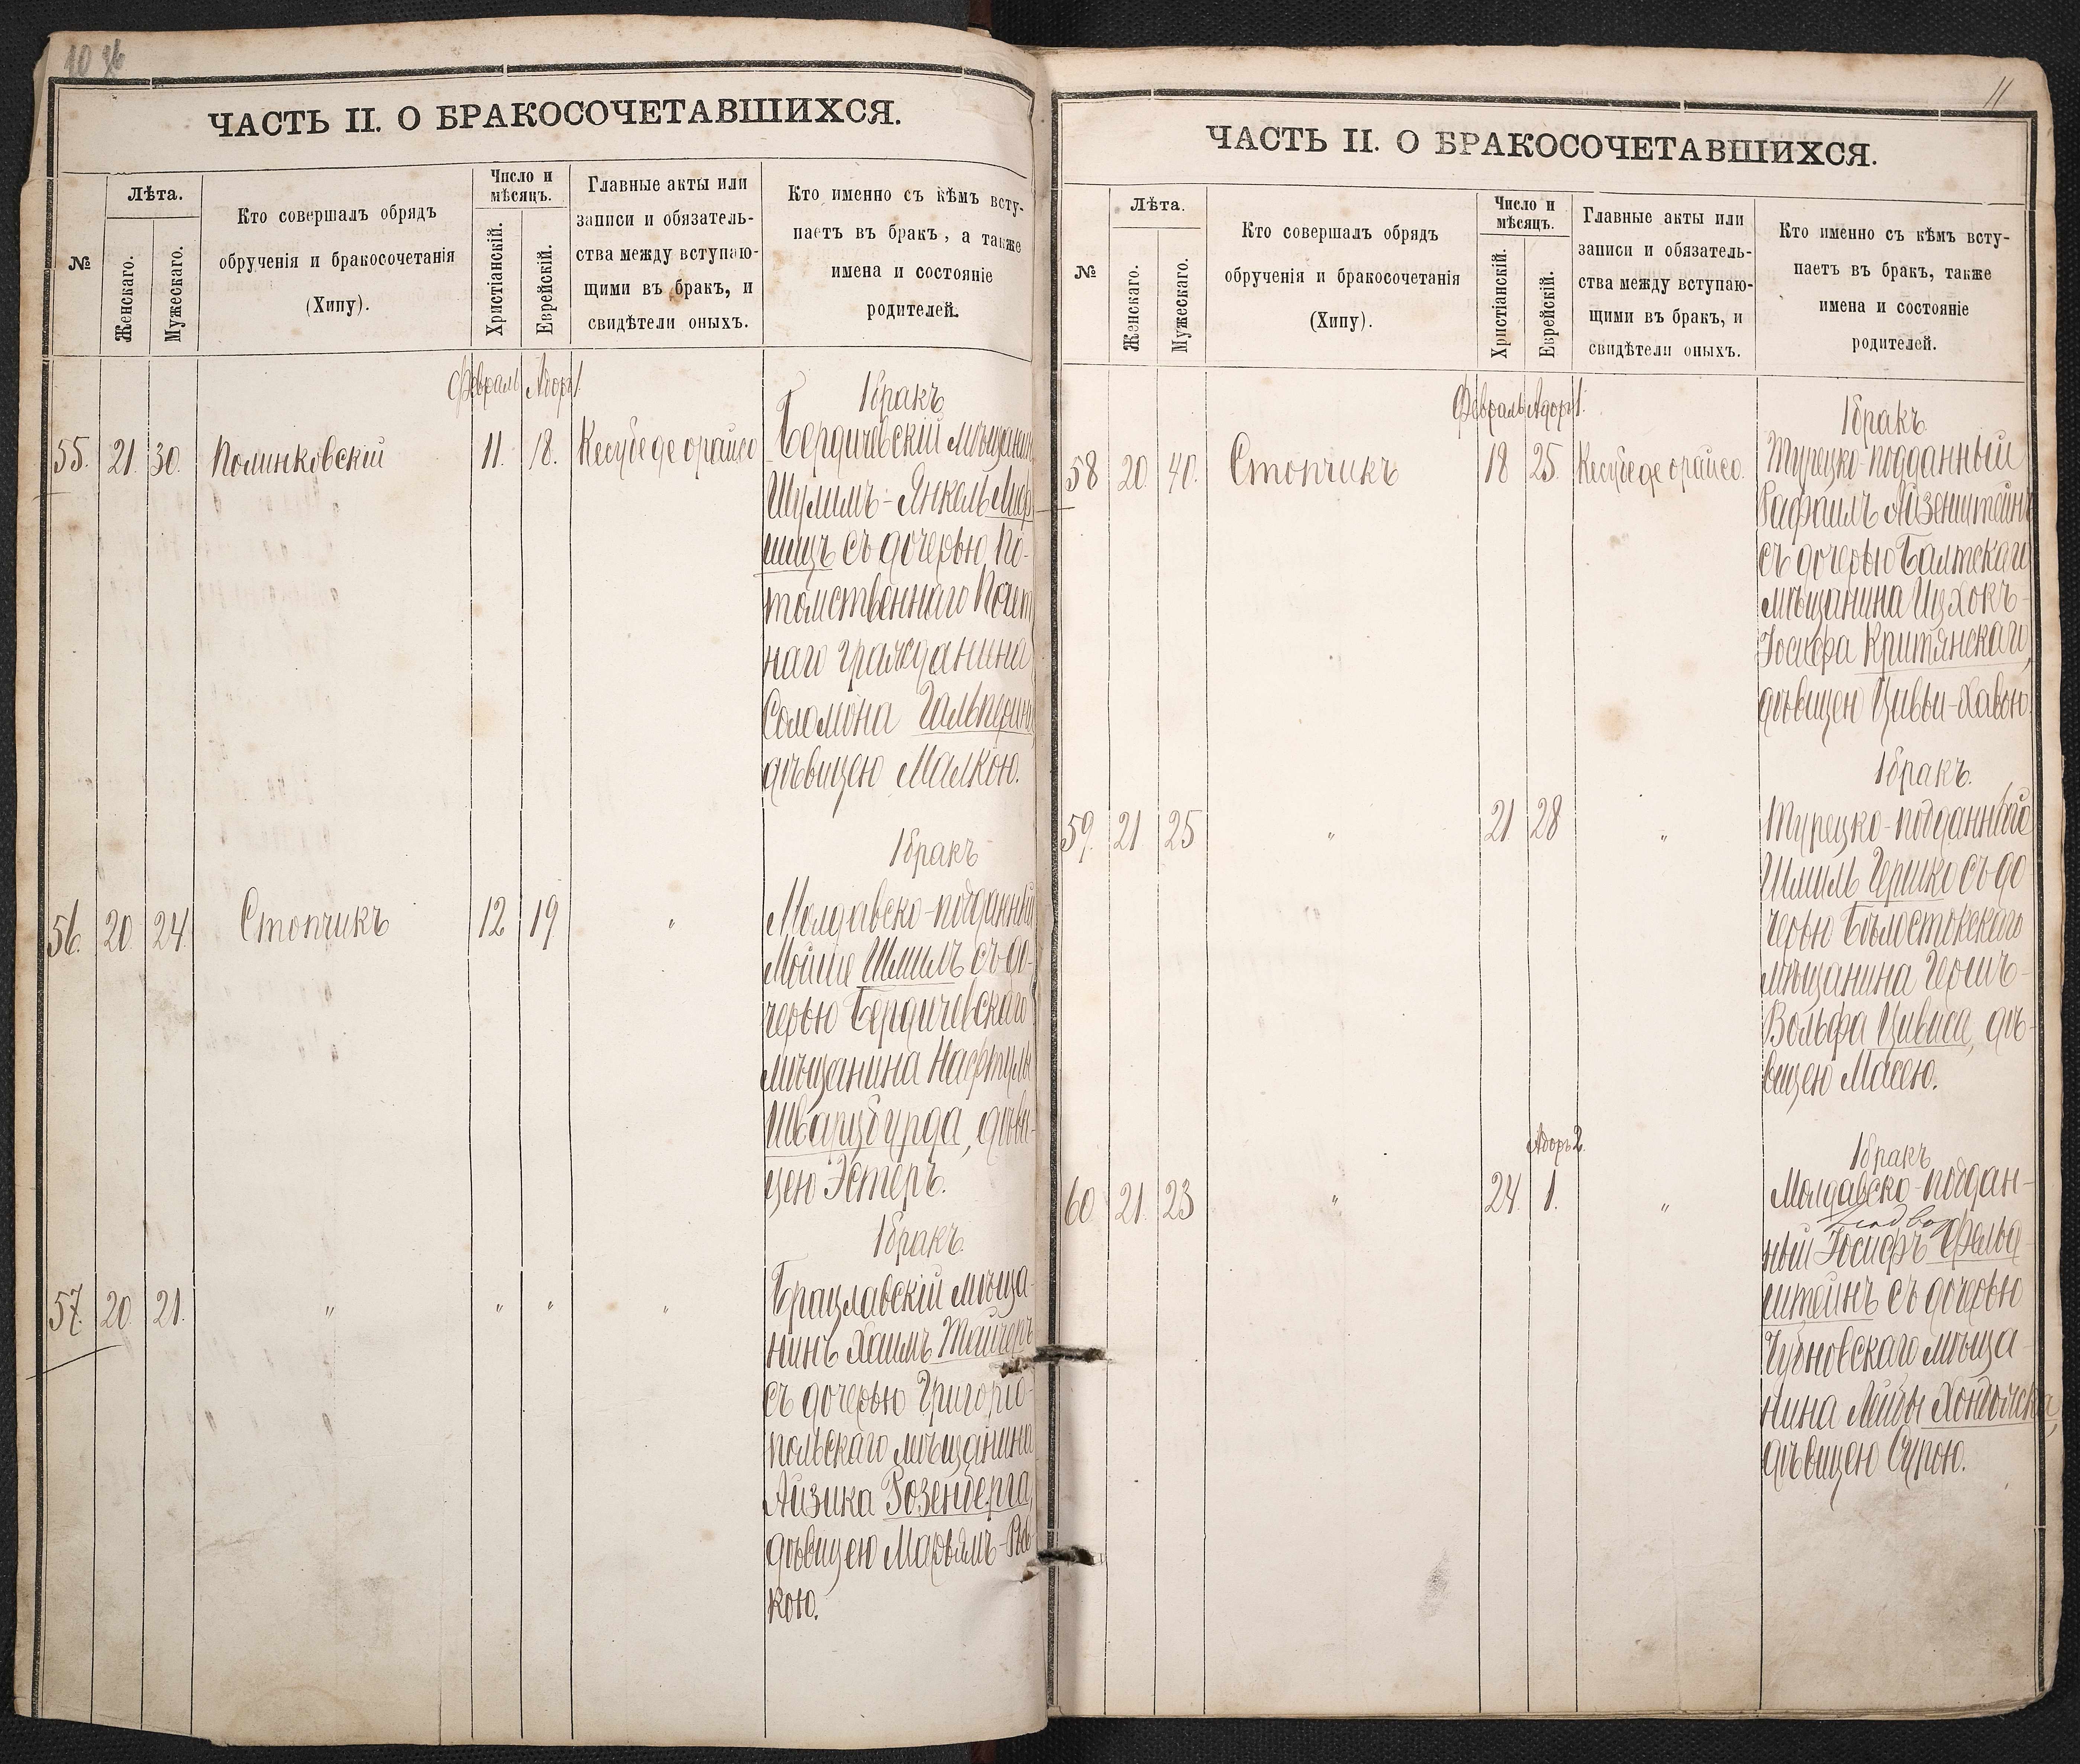 10 об
ЧАСТЬ II. О БРАКОСОЧЕТАВШИХСЯ.
№
Лѣта.
Женскаго.
Мужескаго.
Кто совершалъ обрядъ
обрученія и бракосочетанія
(Хипу).
Число и
мѣсяцъ.
Христіанскій.
Еврейскій.
Главные акты или
записи и обязатель-
ства между вступаю-
щими въ бракъ, и
свидѣтели оныхъ.
Кто именно съ кѣмъ всту-
паетъ въ бракъ, а также
имена и состояніе
родителей.
Февраль Адоръ 1.
1 бракъ
55. 21. 30. Полинковскій 11. 18. Кесубе де орайсо Бердичевскій мѣщанин
Шулимъ-Янкель Лиф
шицъ съ дочерью По-
томственнаго Почет
наго гражданина
Соломона Гальперина
дѣвицею Малкою.
1 бракъ
56. 20. 24. Стопчикъ 12 19 " Молдавско-подданный
Мойше Шмилъ съ до-
черью Бердичевскаго
мѣщанина Нафтулы
Шварцбурда, дѣви-
цею Эстеръ.
1 бракъ.
57. 20. 21. " " " " Брацлавскій мѣща-
нинъ Хаимъ Тайчеръ
съ дочерью Григоріо-
польскаго мѣщанина
Айзика Розенберга,
дѣвицею Марьямъ-Рив-
кою.
11
ЧАСТЬ II. О БРАКОСОЧЕТАВШИХСЯ.
№
Лѣта.
Женскаго.
Мужескаго.
Кто совершалъ обрядъ
обрученія и бракосочетанія
(Хипу).
Число и
мѣсяцъ.
Христіанскій.
Еврейскій.
Главные акты или
записи и обязатель-
ства между вступаю-
щими въ бракъ, и
свидѣтели оныхъ.
Кто именно съ кѣмъ всту-
паетъ въ бракъ, также
имена и состояніе
родителей.
Февраль Адоръ 1.
1 бракъ
58 20. 40. Стопчикъ 18 25. Кесубе де орайсо. Турецко-подданный
Рафаилъ Айзенштейнъ
съ дочерью Балтскаго
мѣщанина Ицхокъ-
Іосифа Критянскаго,
дѣвицею Цивьи-Хавою.
1 бракъ.
59. 21 25 " 21 28 " Турецко-подданный
Шмиль Гершко съ до
черью Бѣлостокскаго
мѣщанина Гершъ-
Вольфа Цивиса, дѣ-
вицею Масею.
Адоръ 2.
1 бракъ
60 21. 23 " 24. 1. " Молдавско-поддан-
ный Іосифъ Фельд
штейнъ съ дочерью
Чудновскаго мѣща-
нина Лейбы
дѣвицею Сурою.